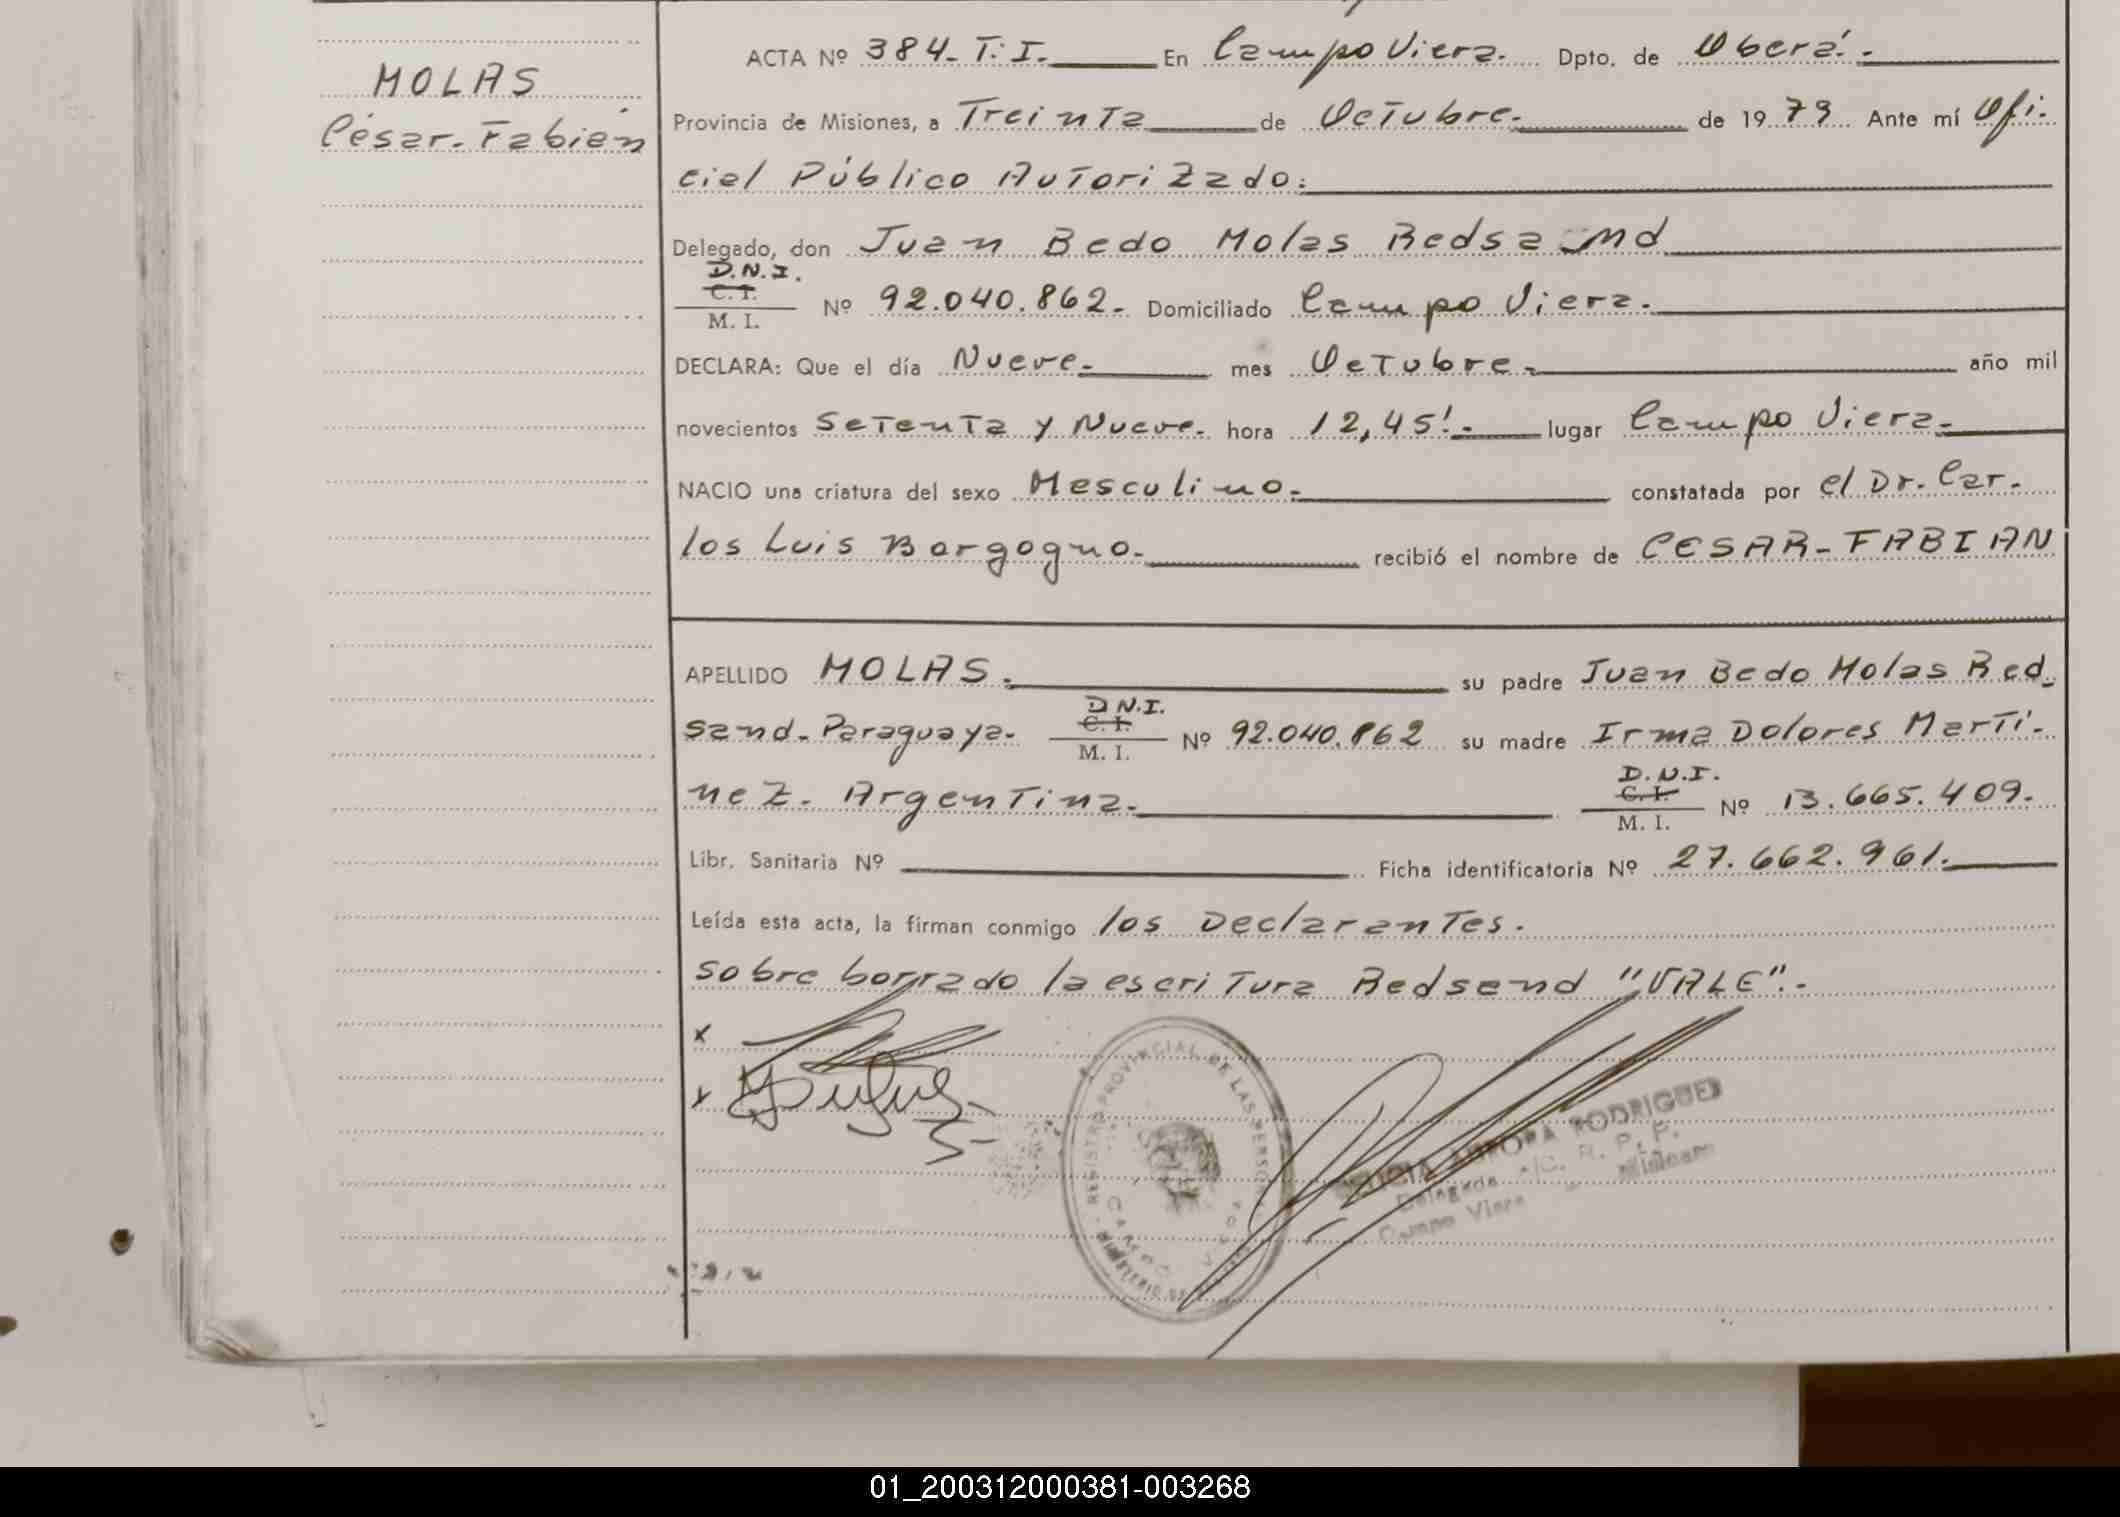 MOLAS
César-Fabián
ACTA Nº 384- T. I. En Campo Viera. Dpto. de Oberá.-
Provincia de Misiones, a Treinta de Octubre.- de 1979. Ante mí Ofi-
cial Público Autorizado.
Delegado, don Juan Bedo Molas Redsand
D.N.I.
C. I.
M. I. Nº 92.040.862.- Domiciliado Campo Viera.
DECLARA: Que el día Nueve.- mes Octubre.- año mil
novecientos Setenta y Nueve. hora 12,45'.- lugar Campo Viera.-
NACIO una criatura del sexo Masculino.- constatada por el Dr. Car-
los Luis Borgogno.- recibió el nombre de CESAR-FABIAN
APELLIDO MOLAS. su padre Juan Bedo Molas Red-
D N.I.
C. I.
sand.- Paraguaya.- M. I. Nº 92.040.862 su madre Irma Dolores Marti-
D.N.I.
C. I.
nez. Argentina.- M. I. Nº 13.665.409.
Libr. Sanitaria Nº Ficha identificatoria Nº 27.662.961.
Leída esta acta, la firman conmigo los Declarantes.
sobre borrado la escritura Redsand "VALE".-
x
x
REGISTRO PROVINCIAL DE LAS PERSONAS
CAMPO VIERA
AURORA RODRIGUEZ
Delegada A/C. R. P. P.
Campo Viera - Misiones
01_200312000381-003268